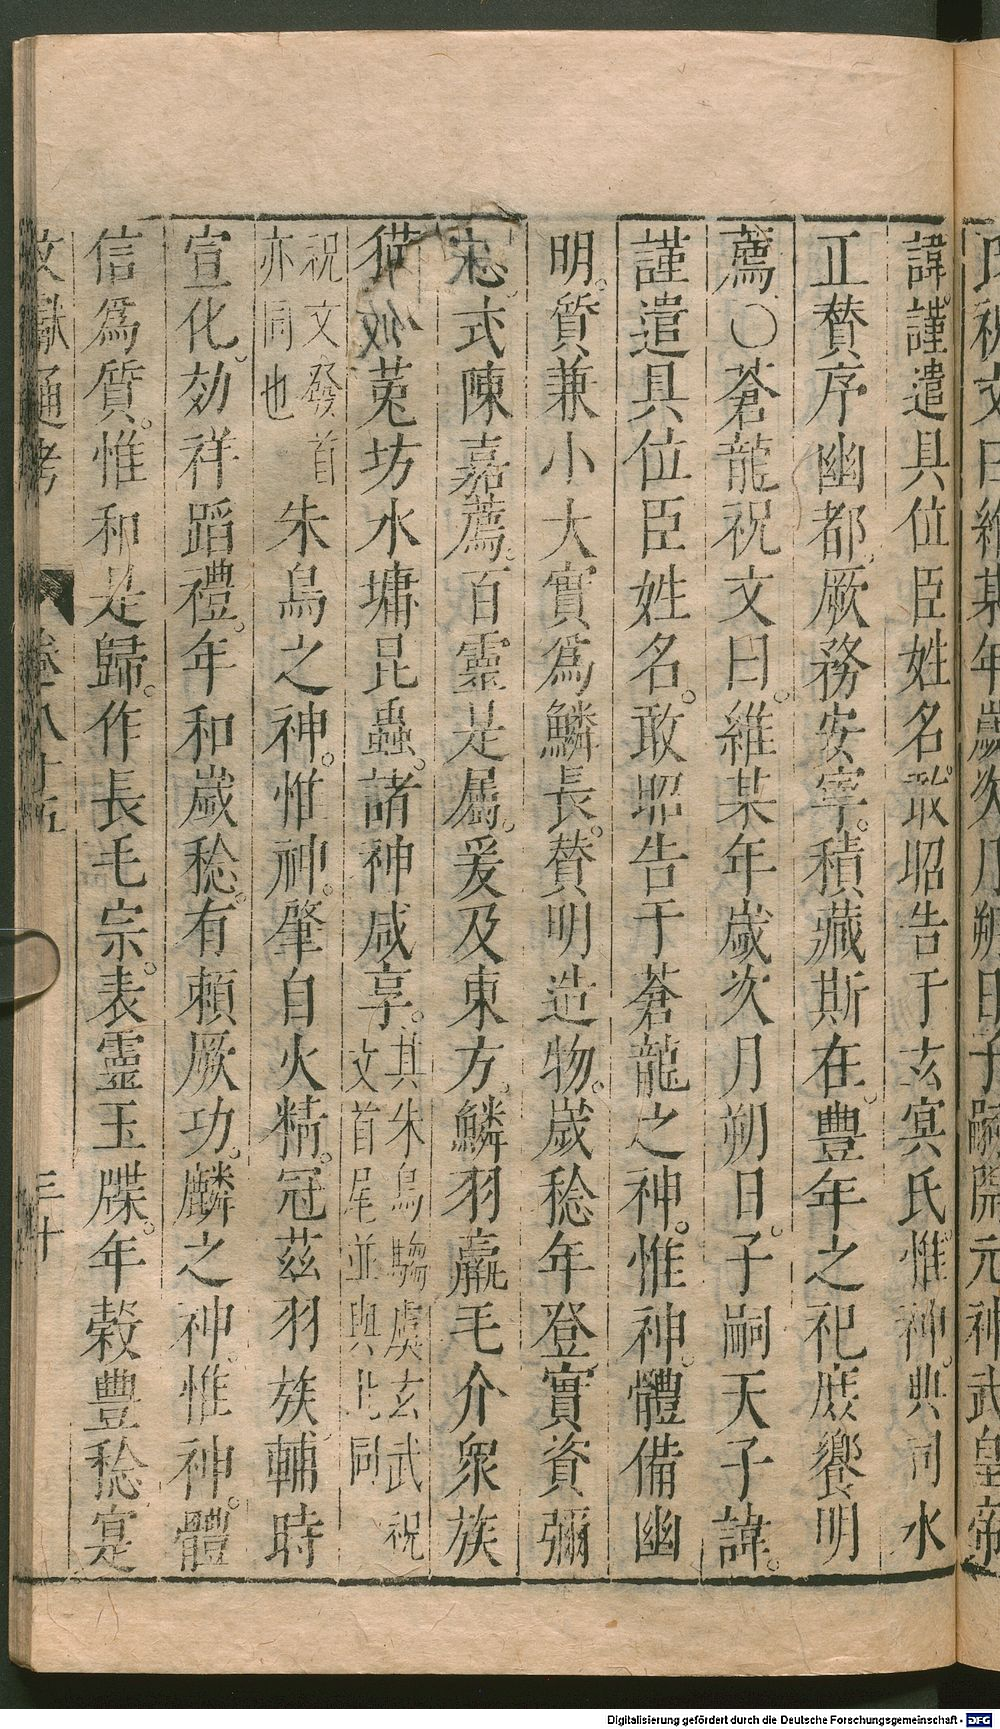 氏祝文曰維某年歲次月朔日子嗣開元神武皇帝
諱。謹遣具位臣姓名。敢昭告于玄冥氏惟神。典司水
正。贊序幽都。厥務安寧。積藏斯在。豐年之祀。庶饗明
薦〇蒼龍祝文曰。維某年歲次月朔日。子嗣天子諱。
謹遣具位臣姓名。敢昭告于蒼龍之神。惟神。體備幽
明。質兼小大。實爲鱗長。贊明造物。歲稔年登。實資彌
式陳嘉薦。百靈是屬。爰及東方。鱗羽臝毛介衆族
菟坊水墉昆蟲。諸神咸享。其朱鳥騶虞玄武祝文首尾並與此同
祝文發首亦同也 朱鳥之神。惟神。肇自火精。冠茲羽族。輔時
宣化。効祥蹈禮。年和歲稔。有賴厥功。麟之神。惟神。體
信爲質。惟和是歸。作長毛宗。表靈玉牒。年穀豐稔寔
文獻通考 卷八十五 三十
Digitalisierung gefördert durch die Deutsche Forschungsgemeinschaft - DFG